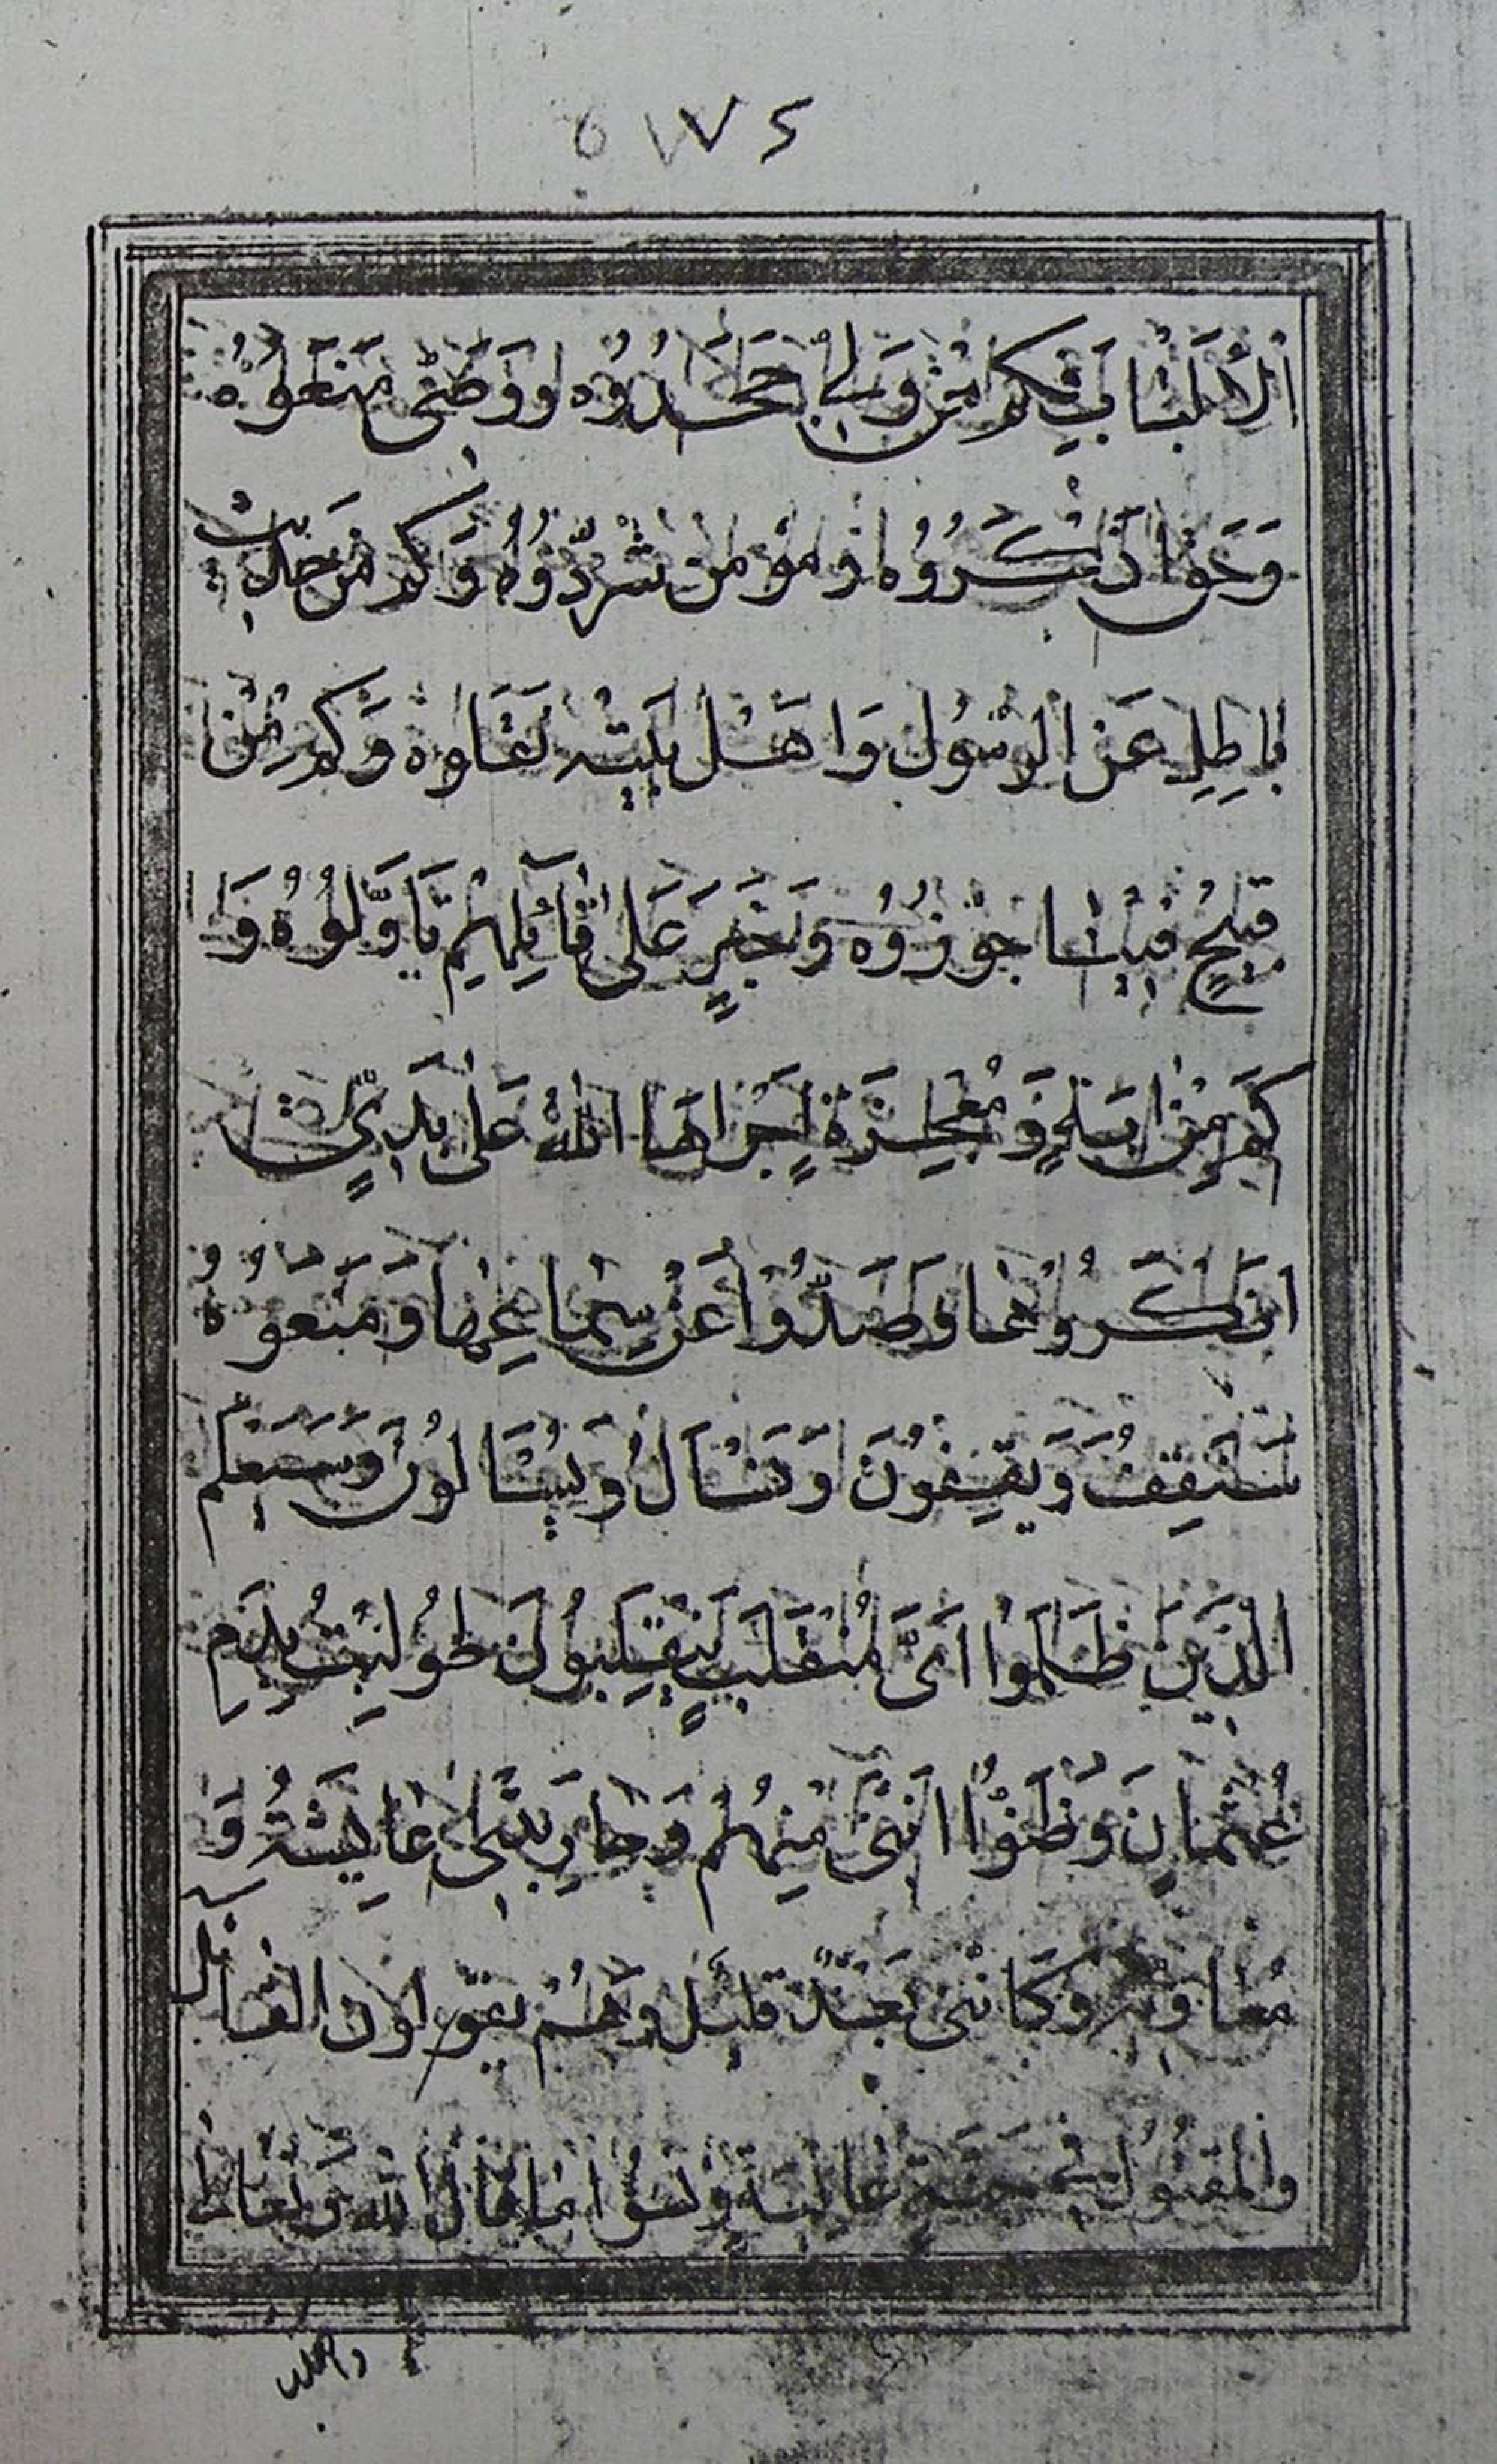 ٥١٧٤
الْأَلْبَابِ فَكَمْ مِنْ وَلِيٍّ جَحَدُوهُ وَوَصِيٍّ مَنَعُوهُ
وَحَقٍّ أَنْكَرُوهُ وَمُؤْمِنٍ شَرَّدُوهُ وَكَمْ مِنْ حَدِيثٍ
بَاطِلٍ عَنِ الرَّسُولِ وَاَهْلِ بَيْتِهِ نَقَلُوهُ وَكَمْ مِنْ
قَبِيحٍ فِينَا جَوَّزُوهُ وَخَبَرٍ عَلَى تَأْيِلِهِمْ تَأَوَّلُوهُ وَ
كَمْ مِنْ اٰيَةٍ وَمُعْجِزَةٍ اَجْرَاهَا اللهُ عَلَى يَدَيَّ
اَنْكَرُوهَا وَصَدُّوا عَنْ سِمَاعِهَا وَمَنَعُوهُ
سَنَقِفُ وَيَقِفُونَ وَنَسْأَلُ وَيُسْأَلُونَ وَسَيَعْلَمُ
الَّذِينَ ظَلَمُوا اَيَّ مُنْقَلَبٍ يَنْقَلِبُونَ طُولِبْتُ بِدَمِ
عُثْمَانَ وَظَنُّوا اَنَّنِي مِنْهُمْ وَحَارَبَتْنِي عَائِشَةُ وَ
مُعَاوِيَةُ وَكَأَنِّي بَعْدَ قَلِيلٍ وَهُمْ يَقُولُونَ الْقَاتِلُ
وَالْمَقْتُولُ فِي جَنَّةٍ عَالِيَةٍ وَنَسُوا مَا قَالَ اللهُ تَعَالَى